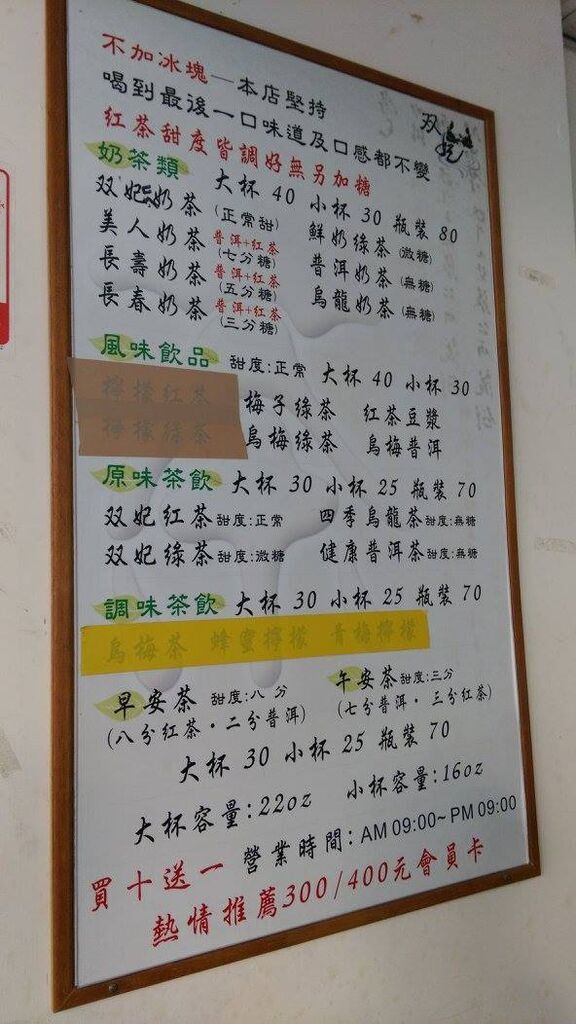 不加冰塊—本店堅持
喝到最後一口味道及口感都不變
双妃
紅茶甜度皆調好無另加糖
奶茶類 大杯 40 小杯 30 瓶裝 80
双妃奶茶(正常甜) 鮮奶綠茶(微糖)
美人奶茶普洱+紅茶(七分糖) 普洱奶茶(無糖)
長壽奶茶普洱+紅茶(五分糖) 烏龍奶茶(無糖)
長春奶茶普洱+紅茶(三分糖)
風味飲品 甜度:正常 大杯 40 小杯 30
檸檬紅茶 梅子綠茶 紅茶豆漿
檸檬綠茶 烏梅綠茶 烏梅普洱
原味茶飲 大杯 30 小杯 25 瓶裝 70
双妃紅茶甜度:正常 四季烏龍茶甜度:無糖
双妃綠茶甜度:微糖 健康普洱茶甜度:無糖
調味茶飲 大杯 30 小杯 25 瓶裝 70
烏梅茶 蜂蜜檸檬 青梅檸檬
早安茶 甜度:八分 午安茶甜度:三分
(八分紅茶・二分普洱) (七分普洱・三分紅茶)
大杯 30 小杯 25 瓶裝 70
大杯容量:22oz 小杯容量:16oz
營業時間:AM 09:00~PM 09:00
買十送一
熱情推薦300/400元會員卡